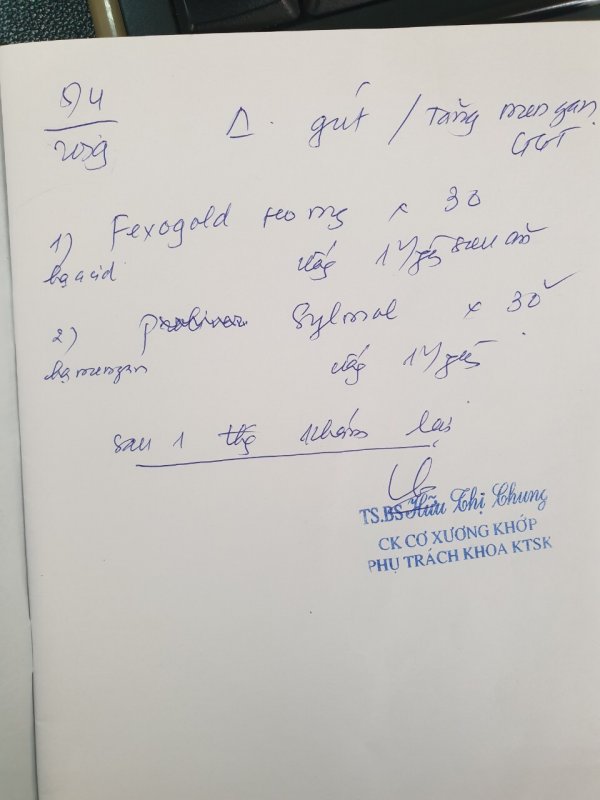 5/4
2019
Δ. gút / Tăng men gan
GGT
1) Fexogold mg x 30
hạ acid uống 1v/ sau ăn
2) Sylmal x 30
hạ men gan uống 1v/
sau 1 thg khám lại
TS.BS Hữu Thị Chung
CK CƠ XƯƠNG KHỚP
PHỤ TRÁCH KHOA KTSK